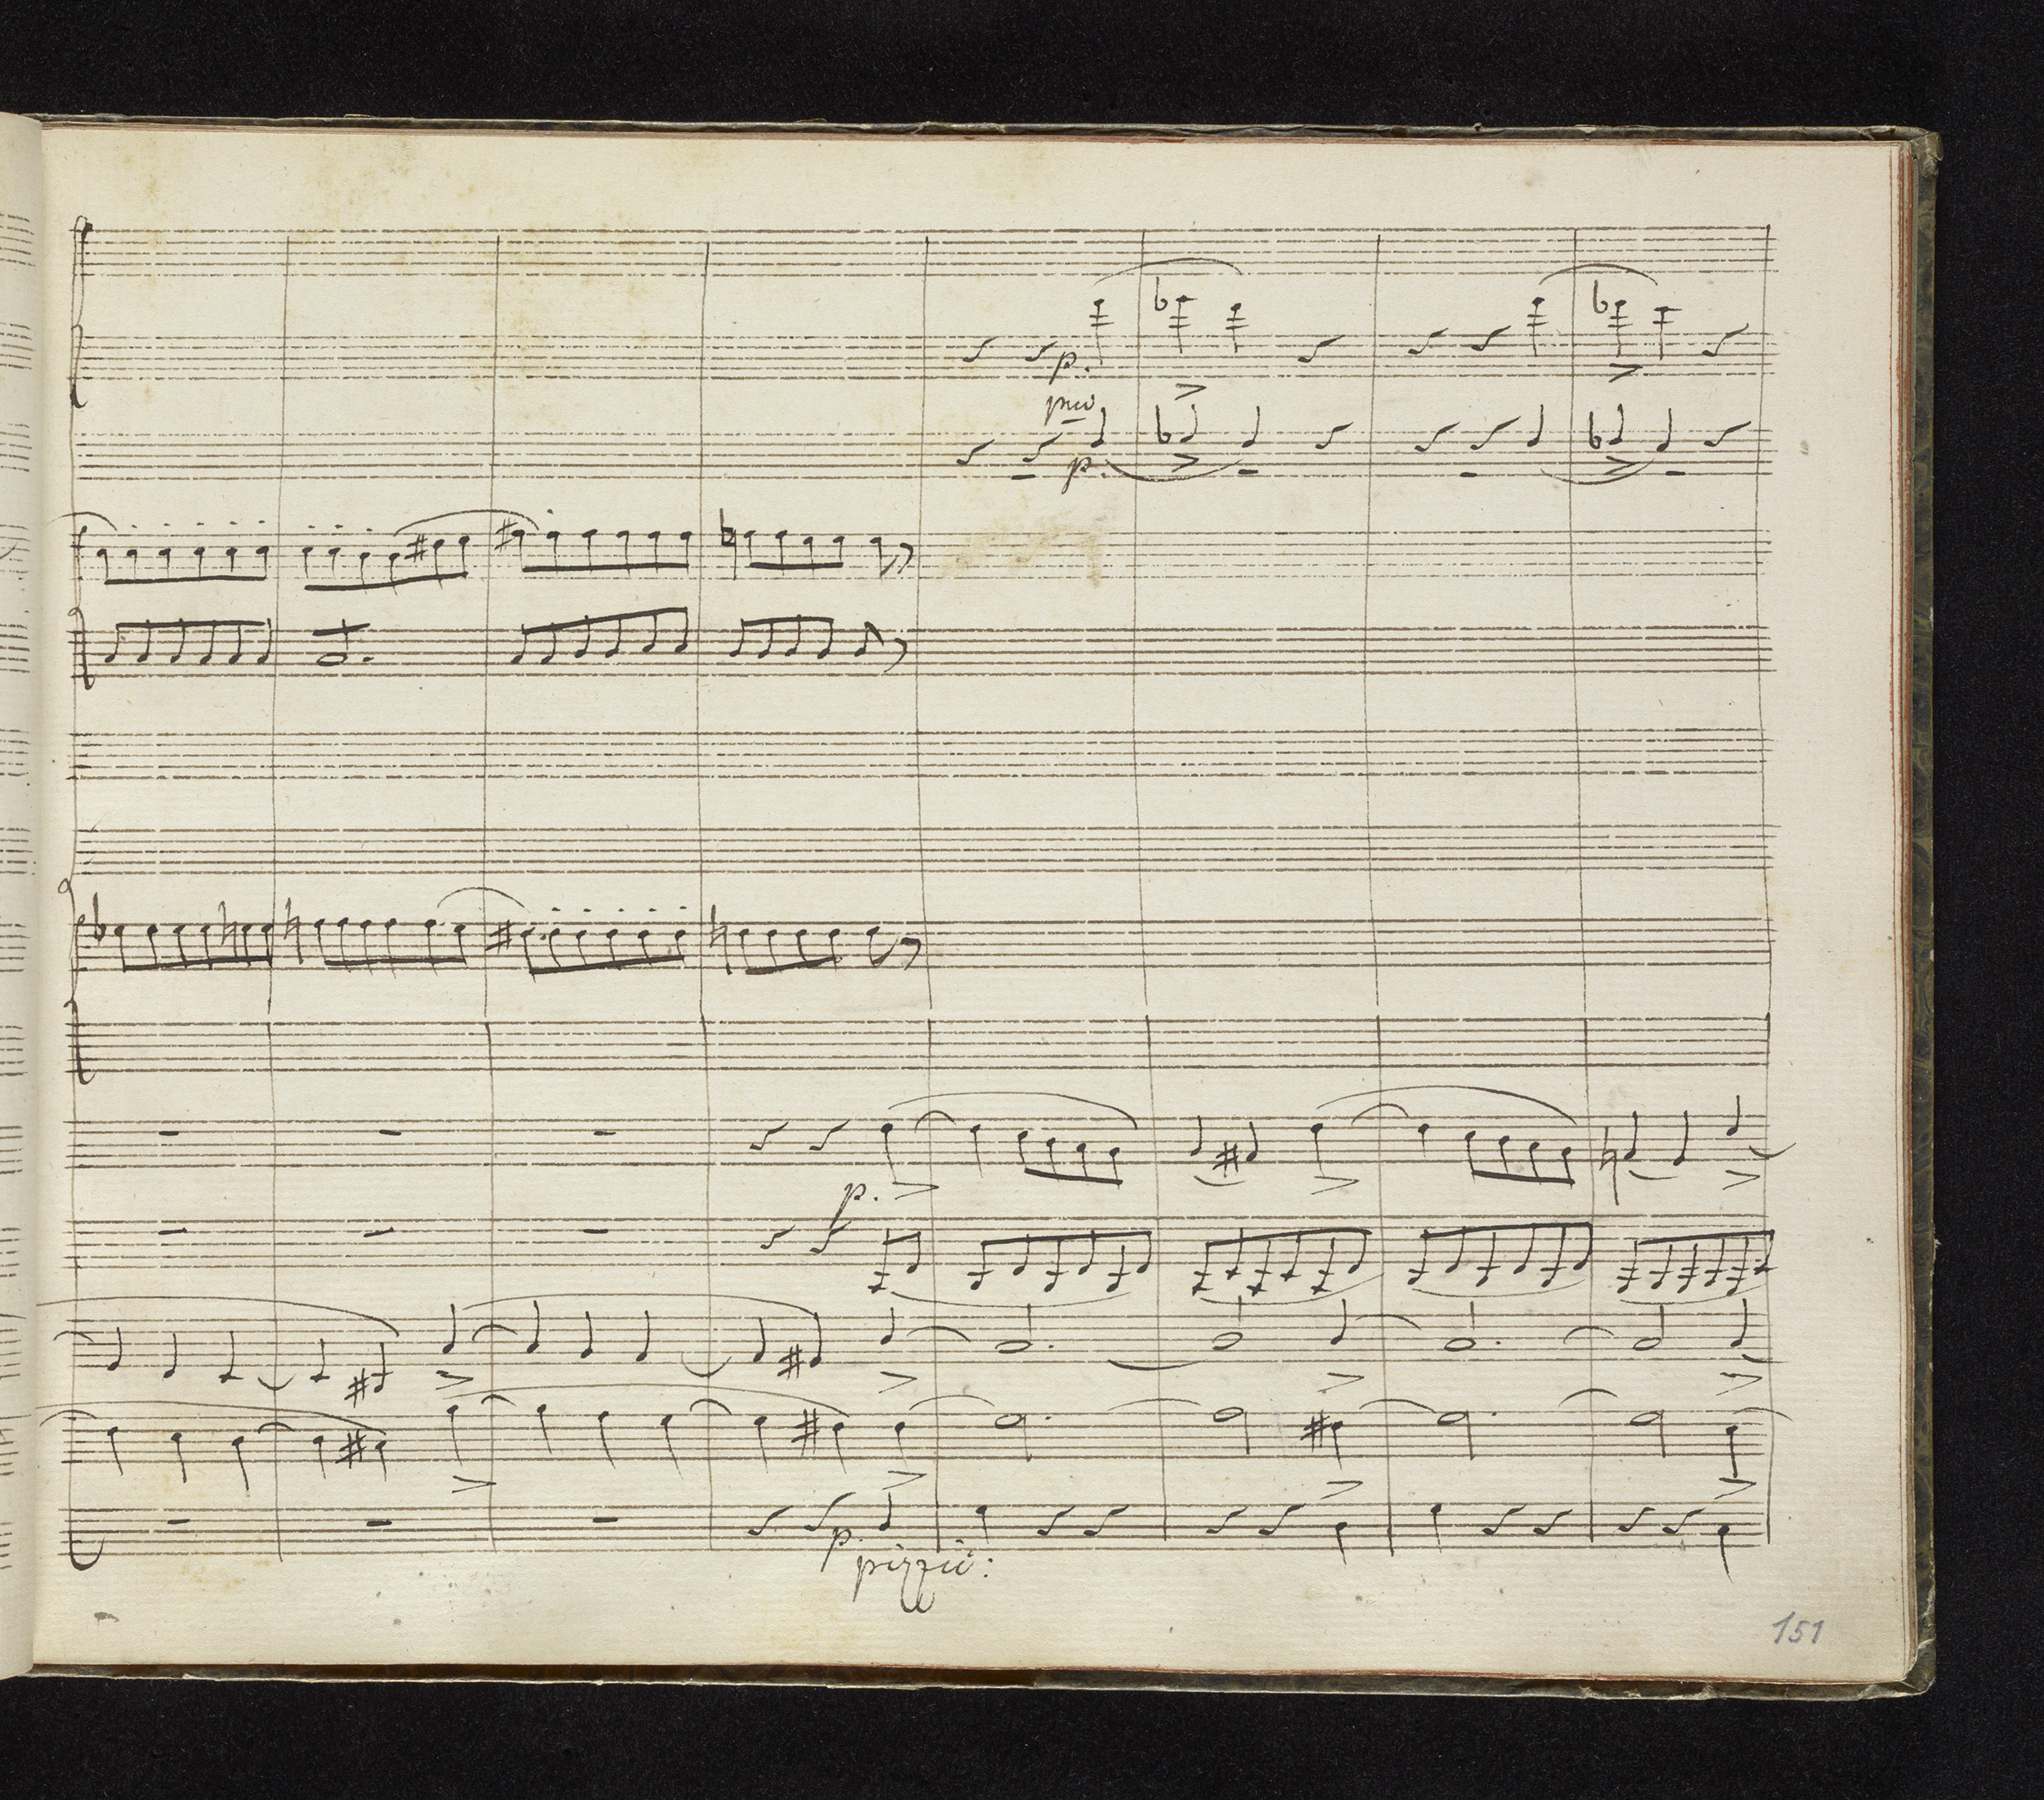 p.
pmo
p.
p.
p.
pizzic:
151